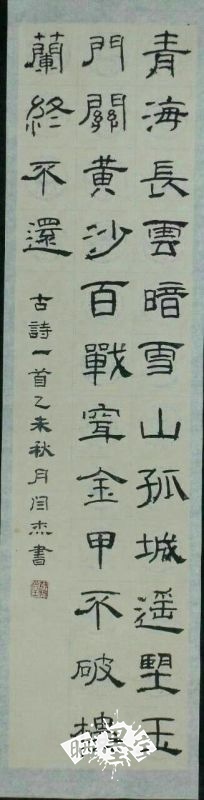 青海長雲暗雪山孤城遥望玉
門關黃沙百戰穿金甲不破樓
蘭終不還
古詩一首乙未秋月闫杰書